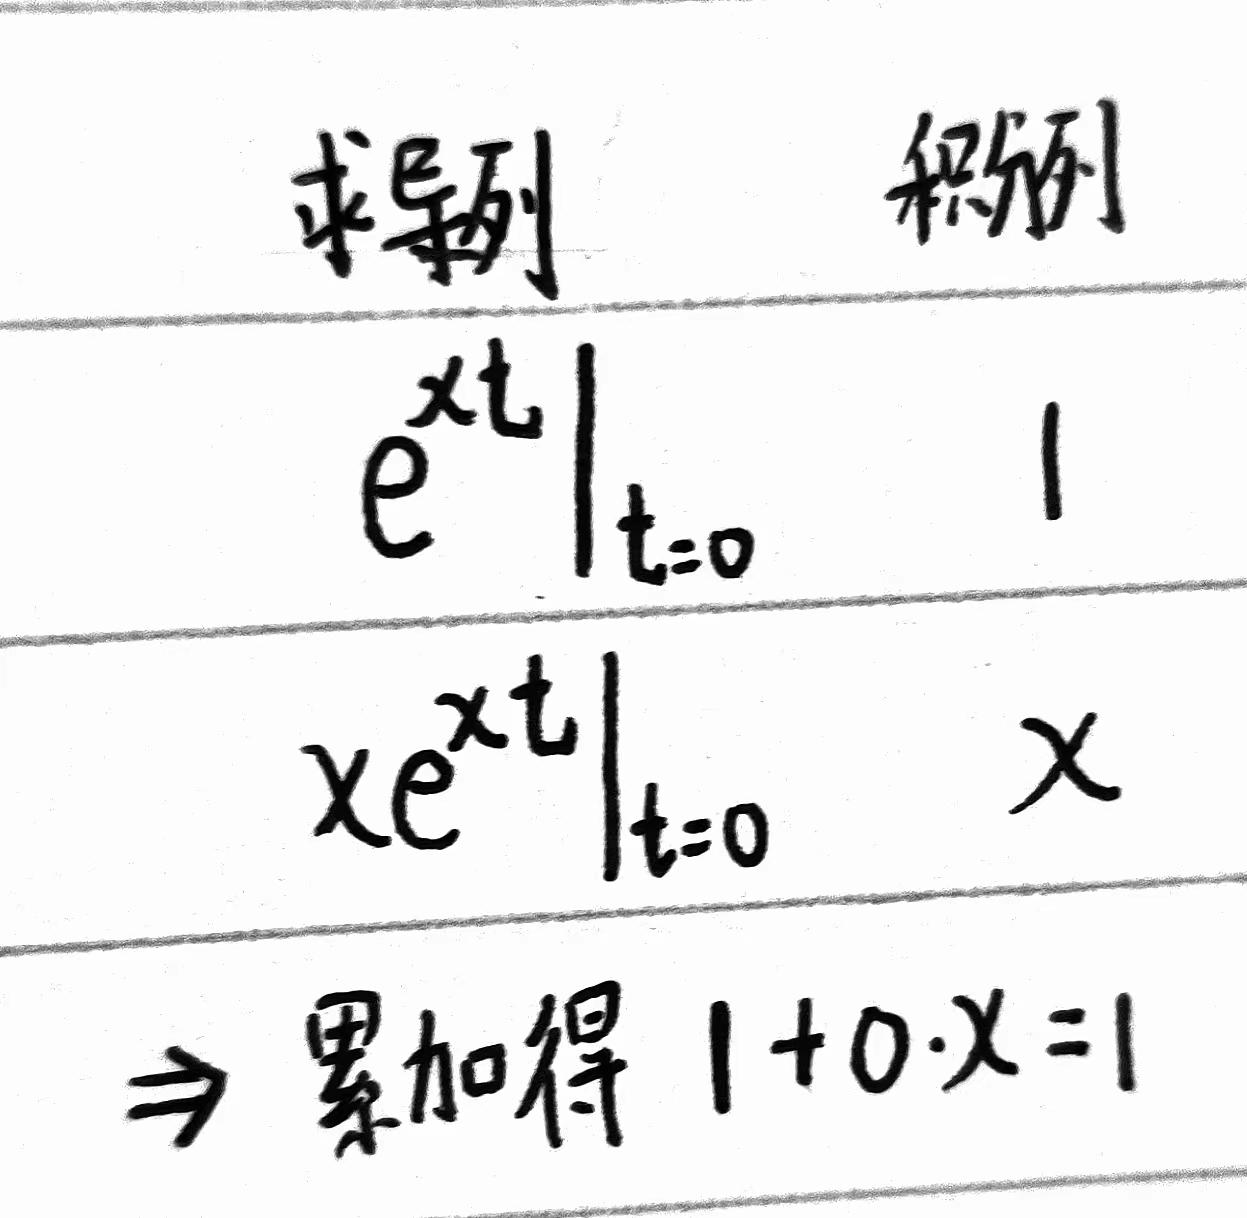 求导列 积分列
e^{xt}|_{t=0} 1
xe^{xt}|_{t=0} x
⇒ 累加得 1+0·x=1